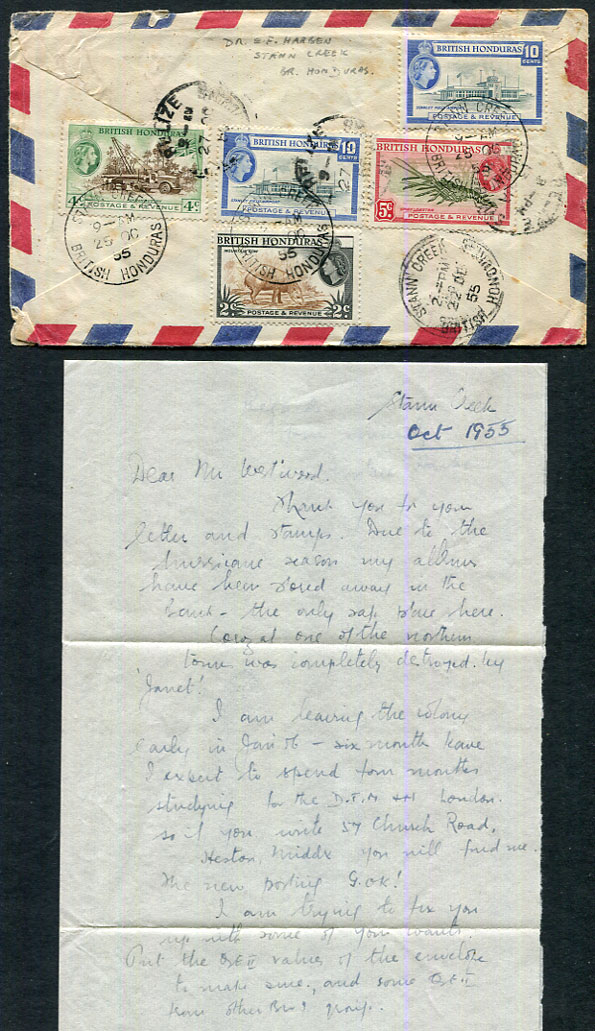 DR. E.F. HARGEN
STANN CREEK
BR. HONDURAS.
BRITISH HONDURAS 10 CENTS
POSTAGE & REVENUE
BRITISH HONDURAS
4c 4c
POSTAGE & REVENUE
BRITISH HONDURAS 10 CENTS
POSTAGE & REVENUE
BRITISH HONDURAS
5c
POSTAGE & REVENUE
BRITISH HONDURAS
MOUNTAIN COW
2c 2c
POSTAGE & REVENUE
BELIZE
STANN CREEK
9-AM
25 OC
55
BRITISH HONDURAS
STANN CREEK
9-AM
25 OC
55
BRITISH HONDURAS
STANN CREEK
2-PM
22 DE
55
BRITISH HOND
Stann Creek
Oct 1955
Dear Mr Westwood.
Thank you for your
letter and stamps. Due to the
hurricane season my albums
have been stored away in the
bank - the only safe place here.
Corozal one of the northern
towns was completely destroyed by
'Janet'.
I am leaving the colony
early in Jan 56 - six month leave
I expect to spend four months
studying for the D.T.M & H London.
so if you write 57 Church Road,
Heston Middx you will find me.
The new posting G.OK!
I am trying to fix you
up with some of your wants.
Put the QEII values of the envelope
to make sure, and some QEII
from other Br